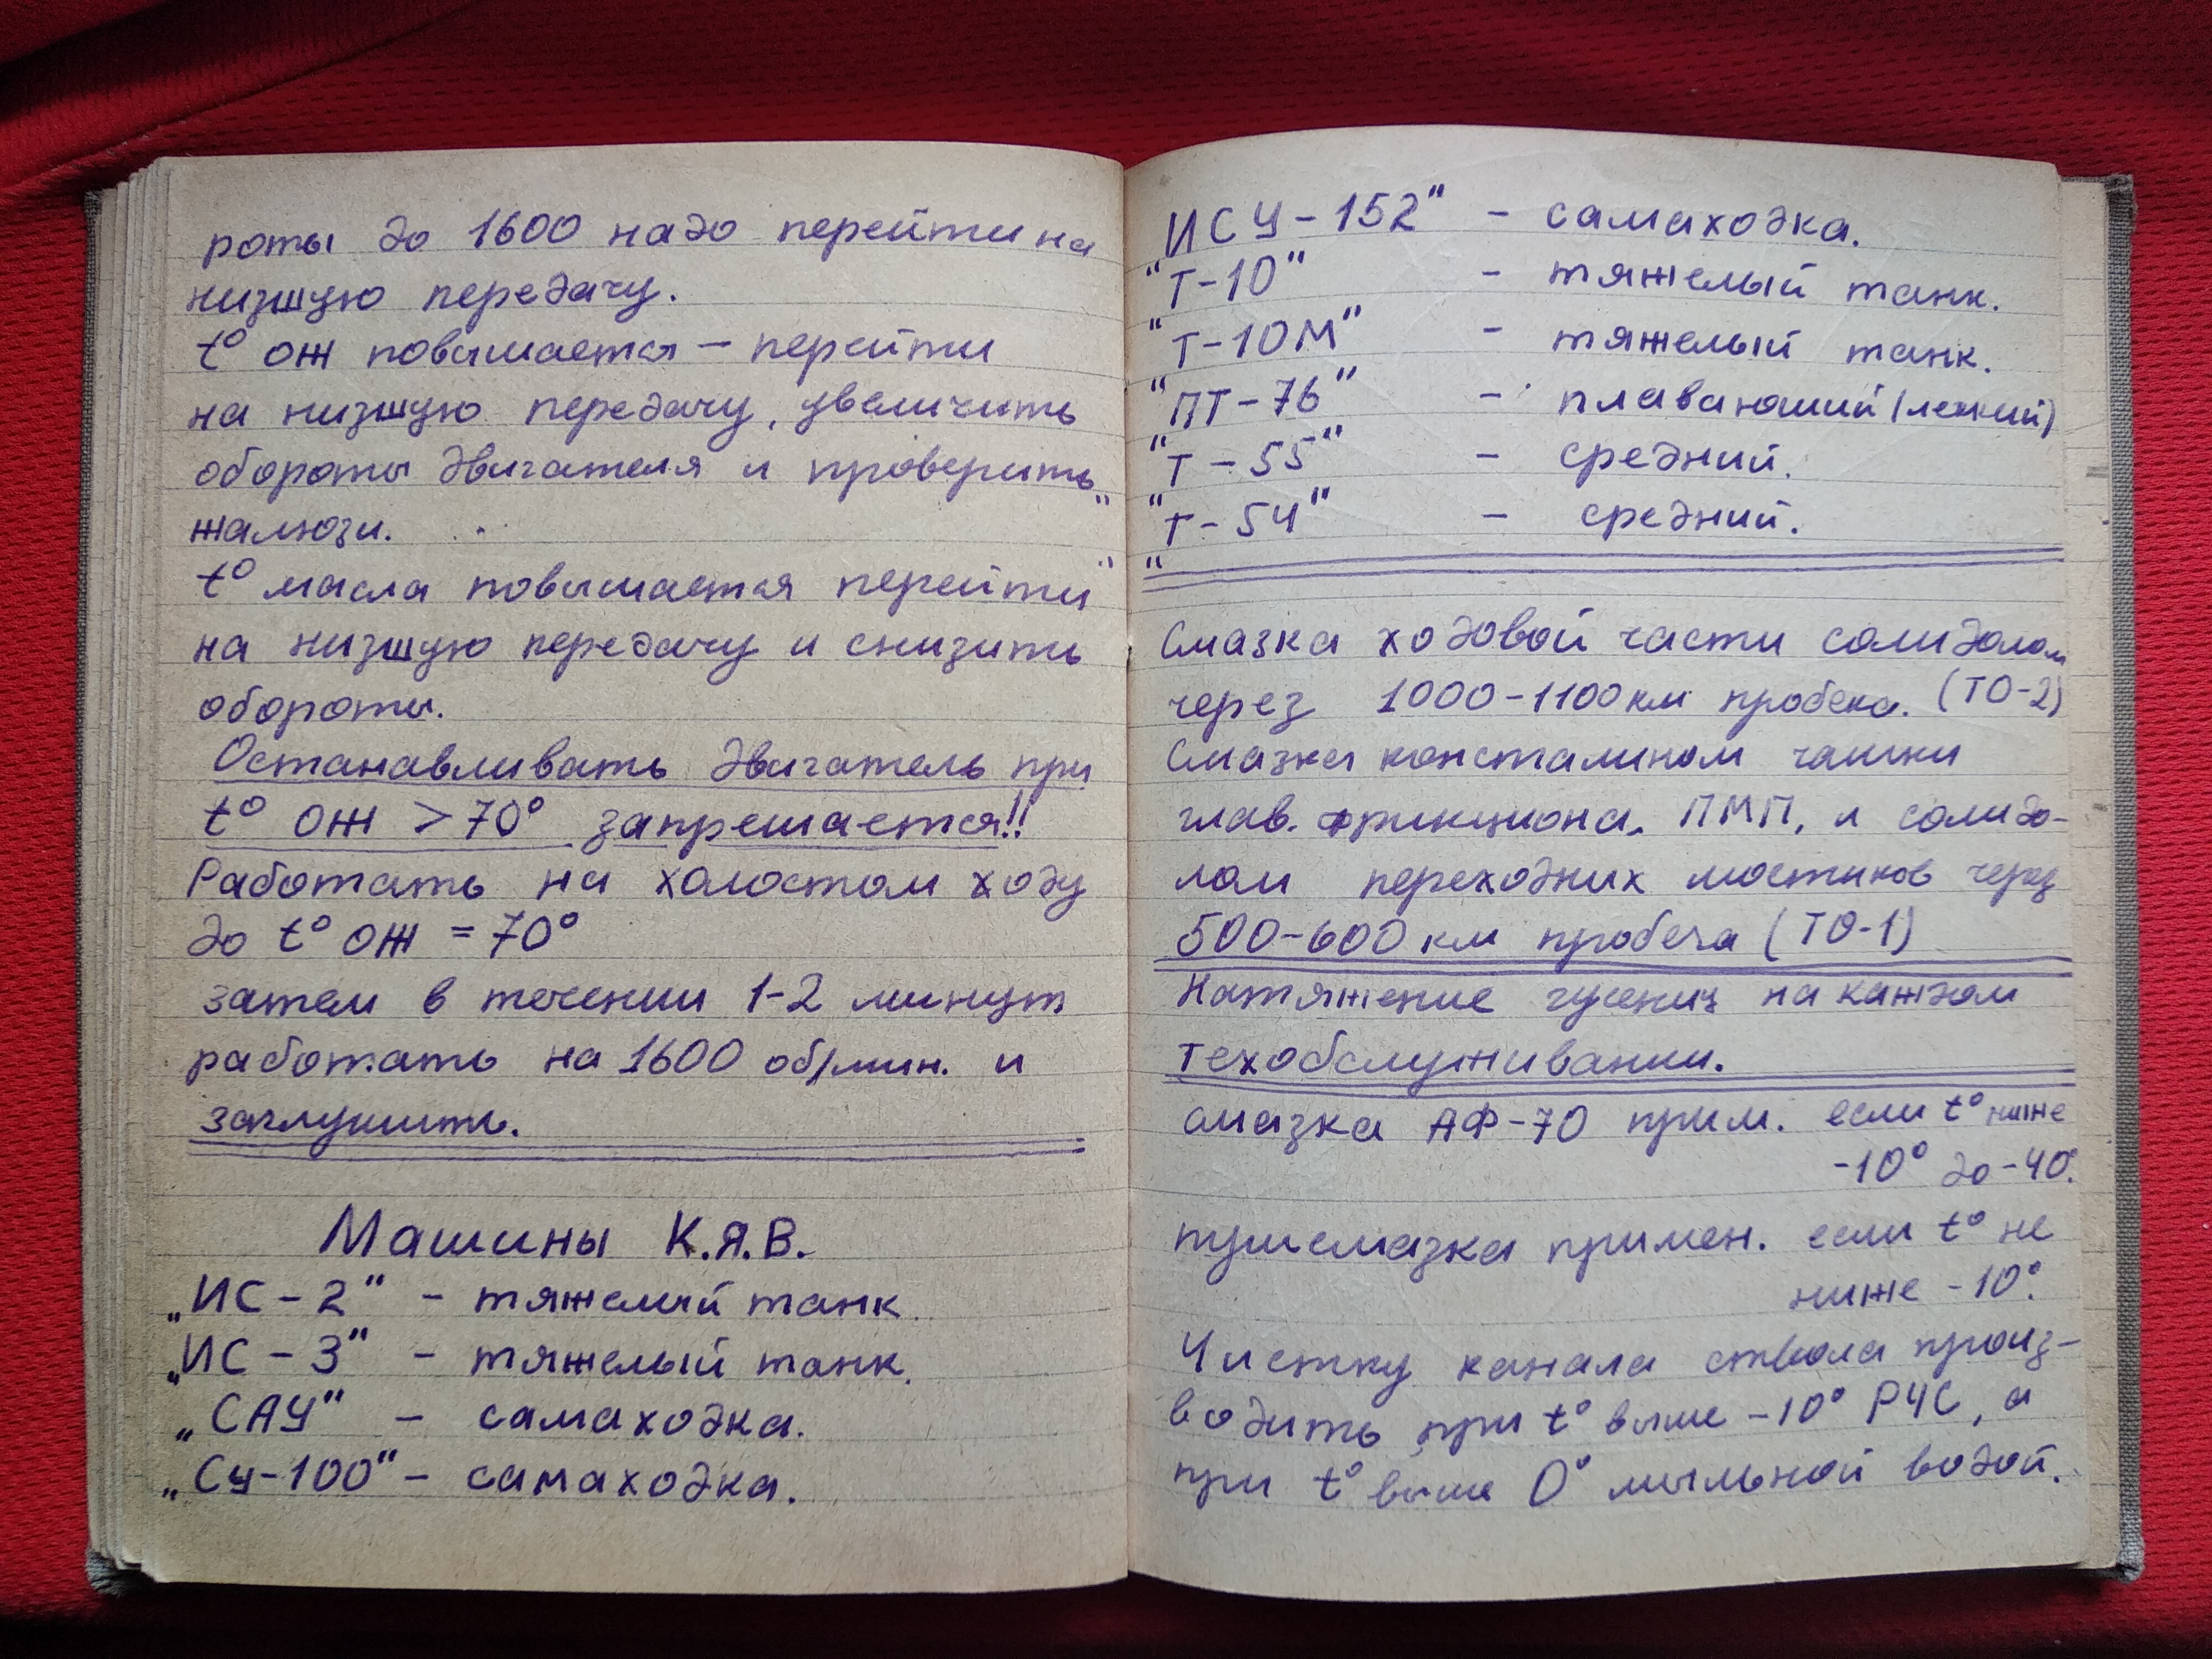 роты до 1600 надо перейти на
низшую передачу.
t° ОЖ повышается – перейти
на низшую передачу, увеличить
обороты двигателя и проверить
жалюзи.
t° масла повышается перейти
на низшую передачу и снизить
обороты.
Останавливать двигатель при
t° ОЖ > 70° запрешается!!
Работать на холостом ходу
до t° ОЖ = 70°
затем в течении 1-2 минут
работать на 1600 об/мин. и
заглушить.
Машины К.Я.В.
„ИС – 2" – тяжелый танк.
„ИС – 3" – тяжелый танк.
„САУ" – самаходка.
„Су-100" – самаходка.
"ИСУ – 152" – самаходка.
"Т-10" – тяжелый танк.
"Т-10М" – тяжелый танк.
"ПТ-76" – плаваюший (легкий)
"Т – 55" – средний.
"Т – 54" – средний.
Смазка ходовой части солидолом
через 1000-1100 км пробега. (ТО-2)
Смазка консталином чашки
глав. фрикциона, ПМП, и солидо-
лом переходних мостиков через
500-600 км пробега (ТО-1)
Натяжение гусениц на каждом
техобслуживании.
смазка АФ-70 прим. если t° ниже
-10° до -40°.
пушсмазка примен. если t° не
ниже -10°.
Чистку канала ствола произ-
водить при t° выше -10° РЧС, а
при t° выше 0° мыльной водой.